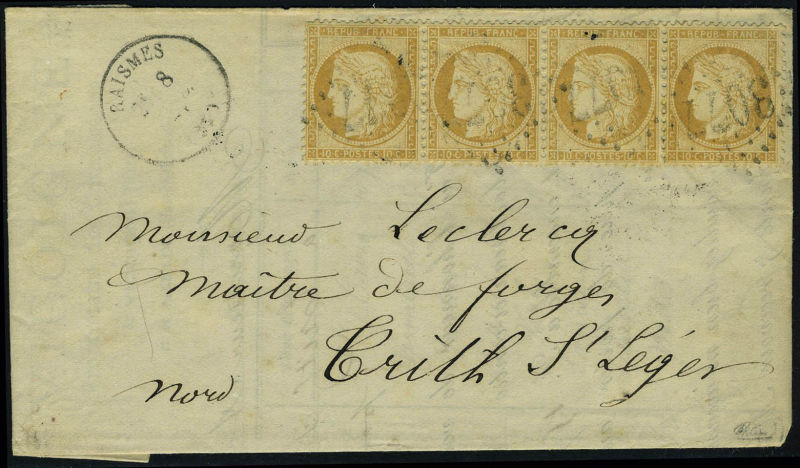 REPUB. FRANC. REPUB. FRANC. REPUB. FRANC. REPUB. FRANC.
10 c. POSTES 10 c. 10 c. POSTES 10 c. 10 c. POSTES 10 c. 10 c. POSTES 10 c.
RAISMES
8
Monsieur Leclercq
Maître de forges
Trith St Léger
Nord